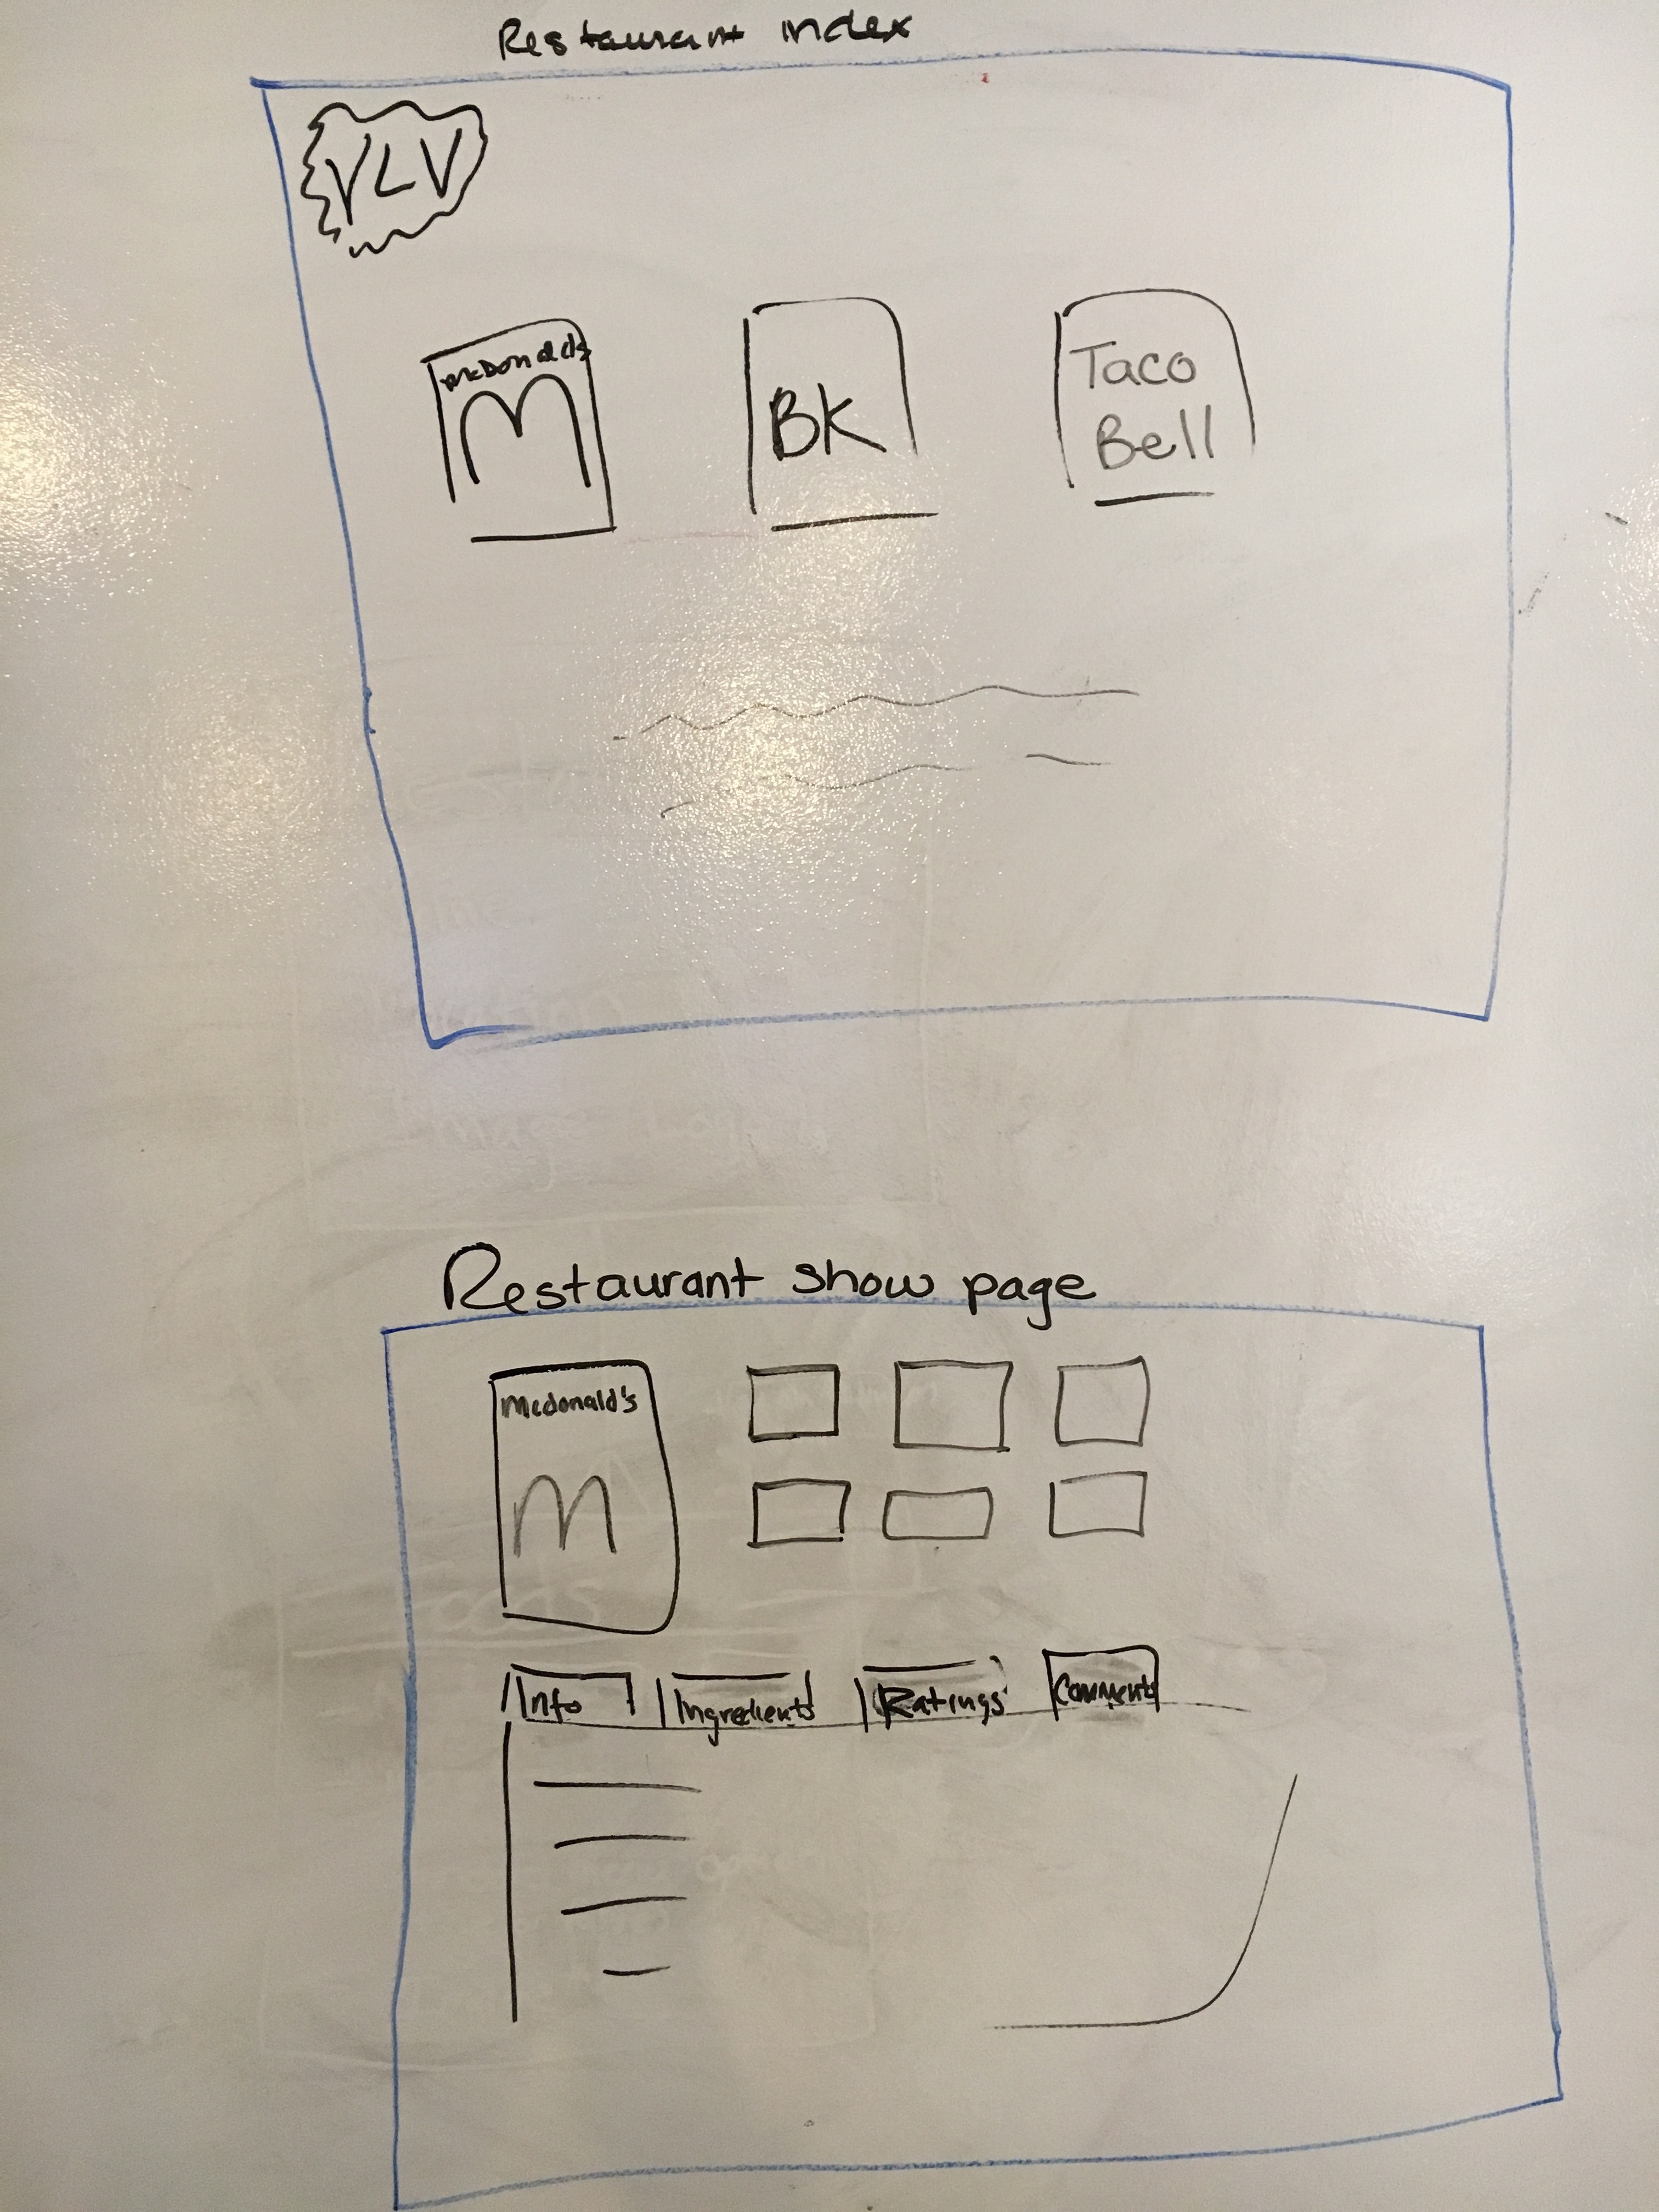 Restaurant index
YLV
McDonalds
M
BK
Taco
Bell
Restaurant show page
Mcdonald's
M
Info
Ingredients
Ratings
Comments